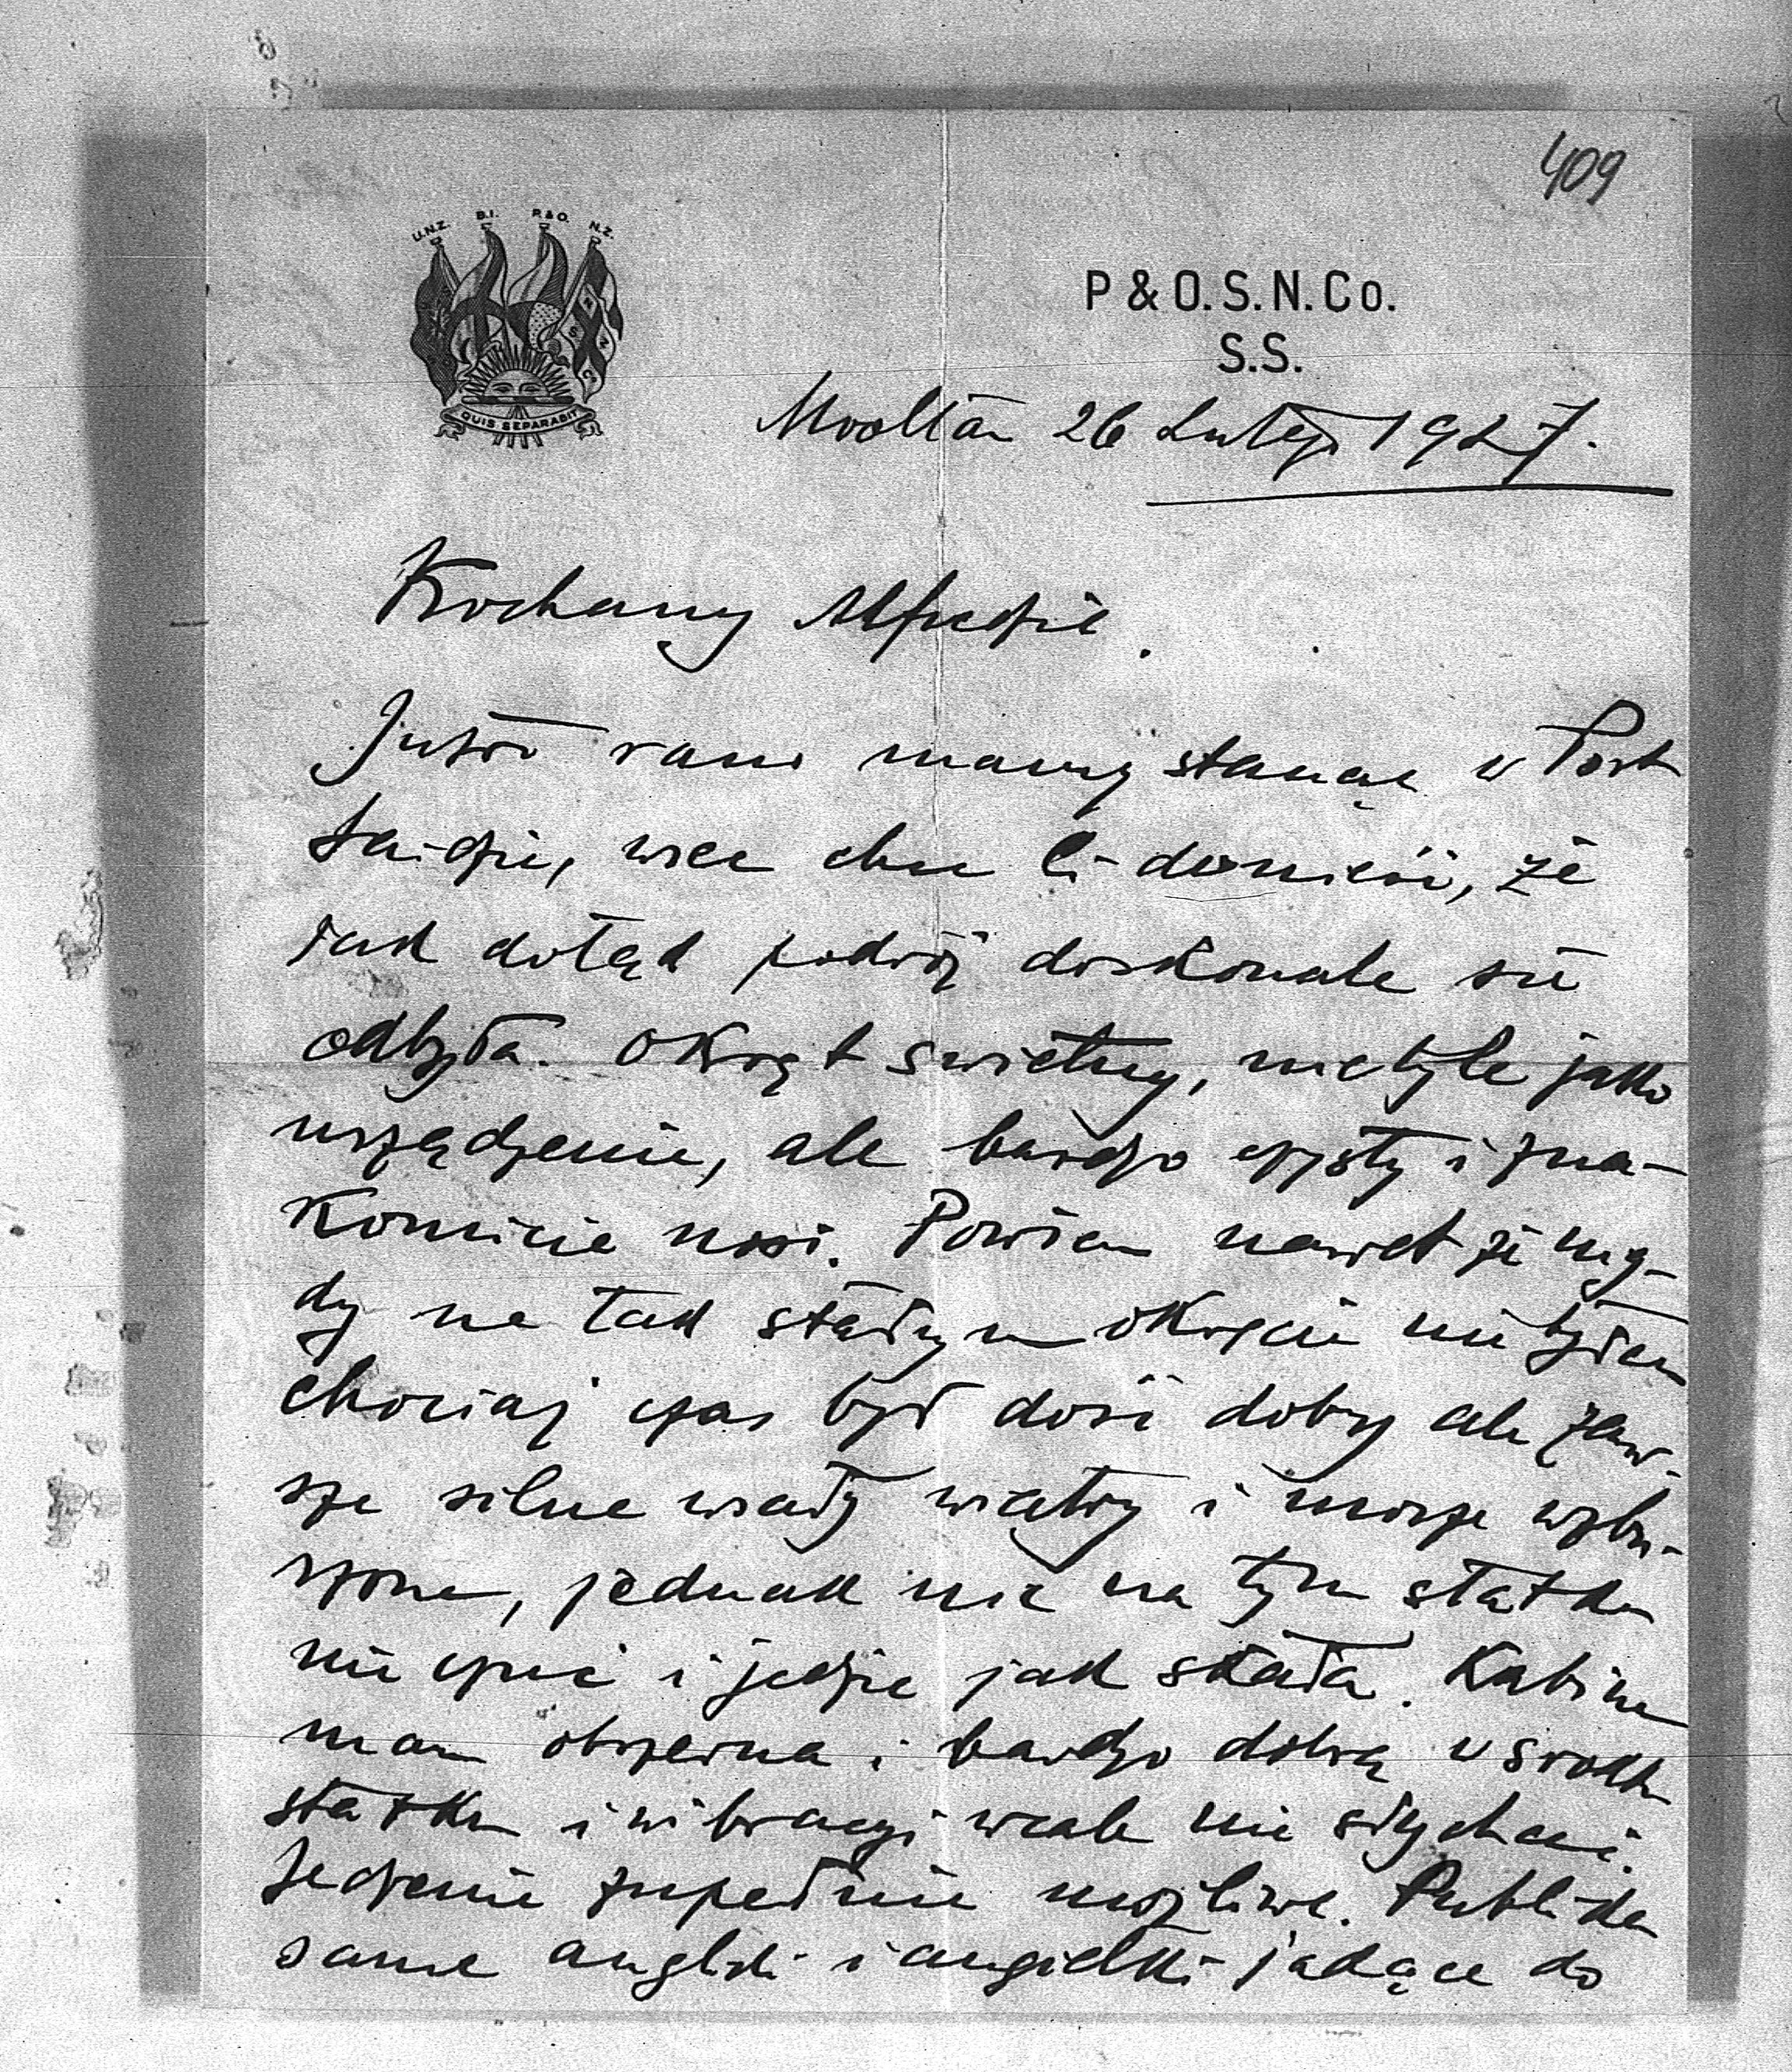 409
U.N.Z. B.I. P.&O. N.Z.
QUIS SEPARABIT
P & O. S. N. Co.
S.S.
Mooltan 26 Lutego 1927.
Kochany Alfredzie.
Jutro rano mamy stanąć w Port
Saidzie, więc chcę Ci donieść, że
jak dotąd podróż doskonale się
odbyła. Okręt świetny, nietyle jako
urządzenie, ale bardzo czysty i zna-
komicie nosi. Powiem nawet że nig-
dy na tak stałym okręcie nie byłem
chociaż czas był dość dobry ale zaw-
sze silne wiały wiatry i morze wzbu-
rzone, jednak nic na tym statku
nie czuć i jedzie jak skała. Kabinę
mam obszerną i bardzo dobrą w środku
statku i wibracyi wcale nie słychać.
Jedzenie zupełnie możliwe. Publika
same angliki i angielki jadące do